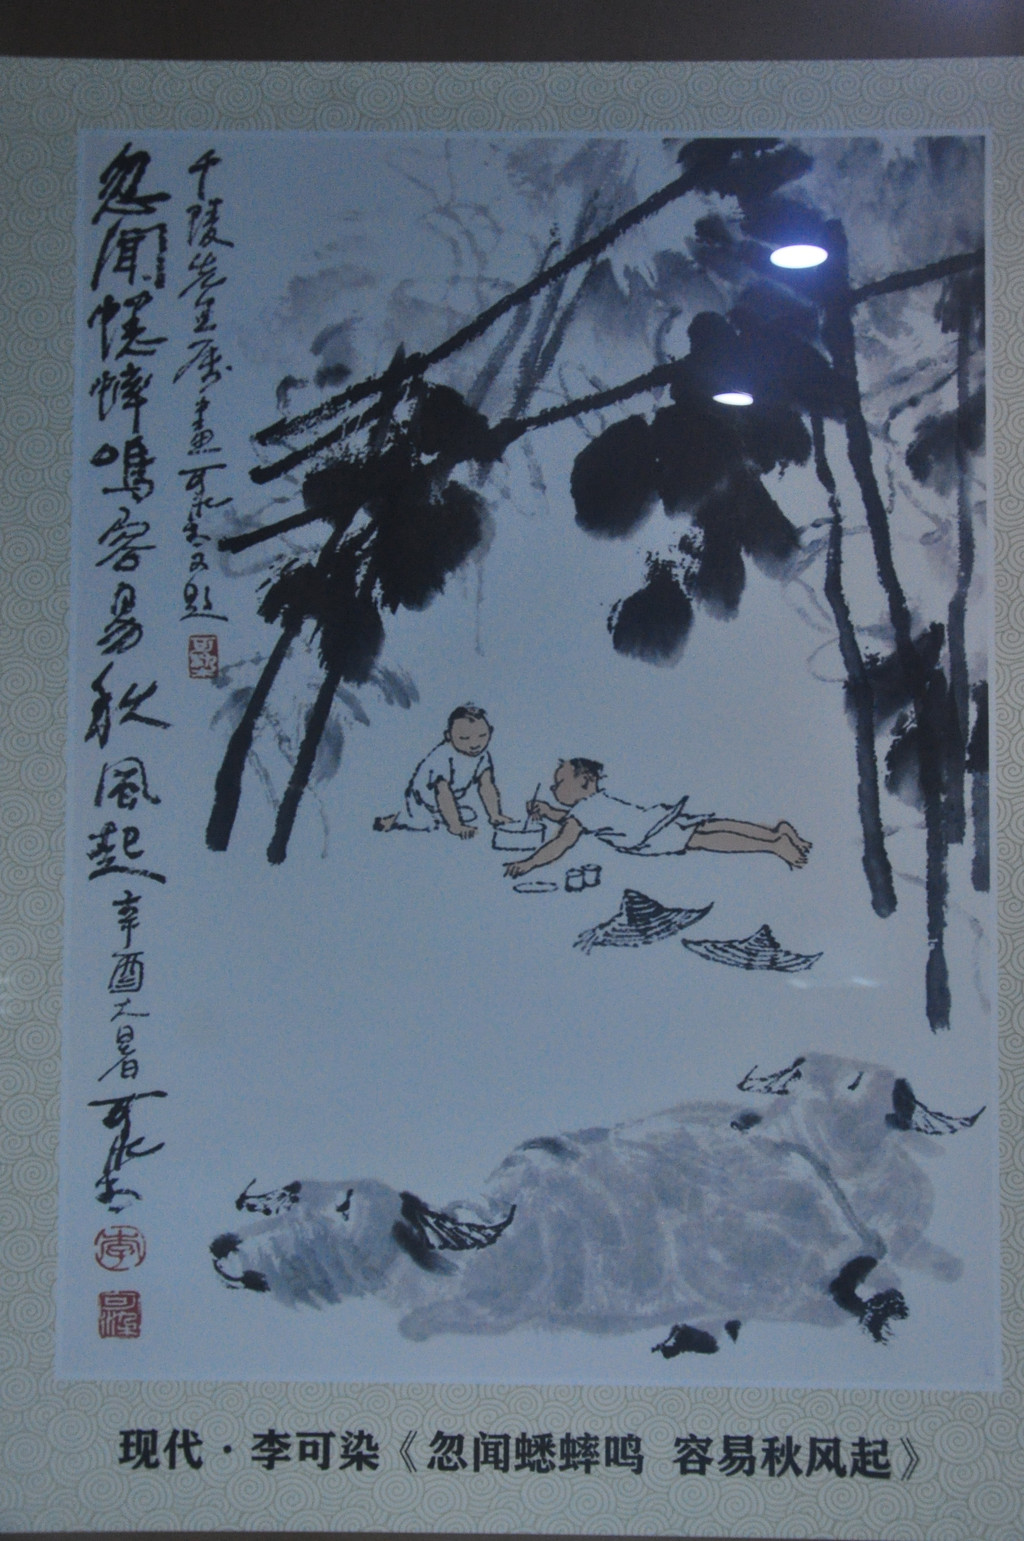 忽闻蟋蟀鸣容易秋風起
辛酉大暑可染
千陵先生属画可染又题
现代·李可染《忽闻蟋蟀鸣 容易秋风起》